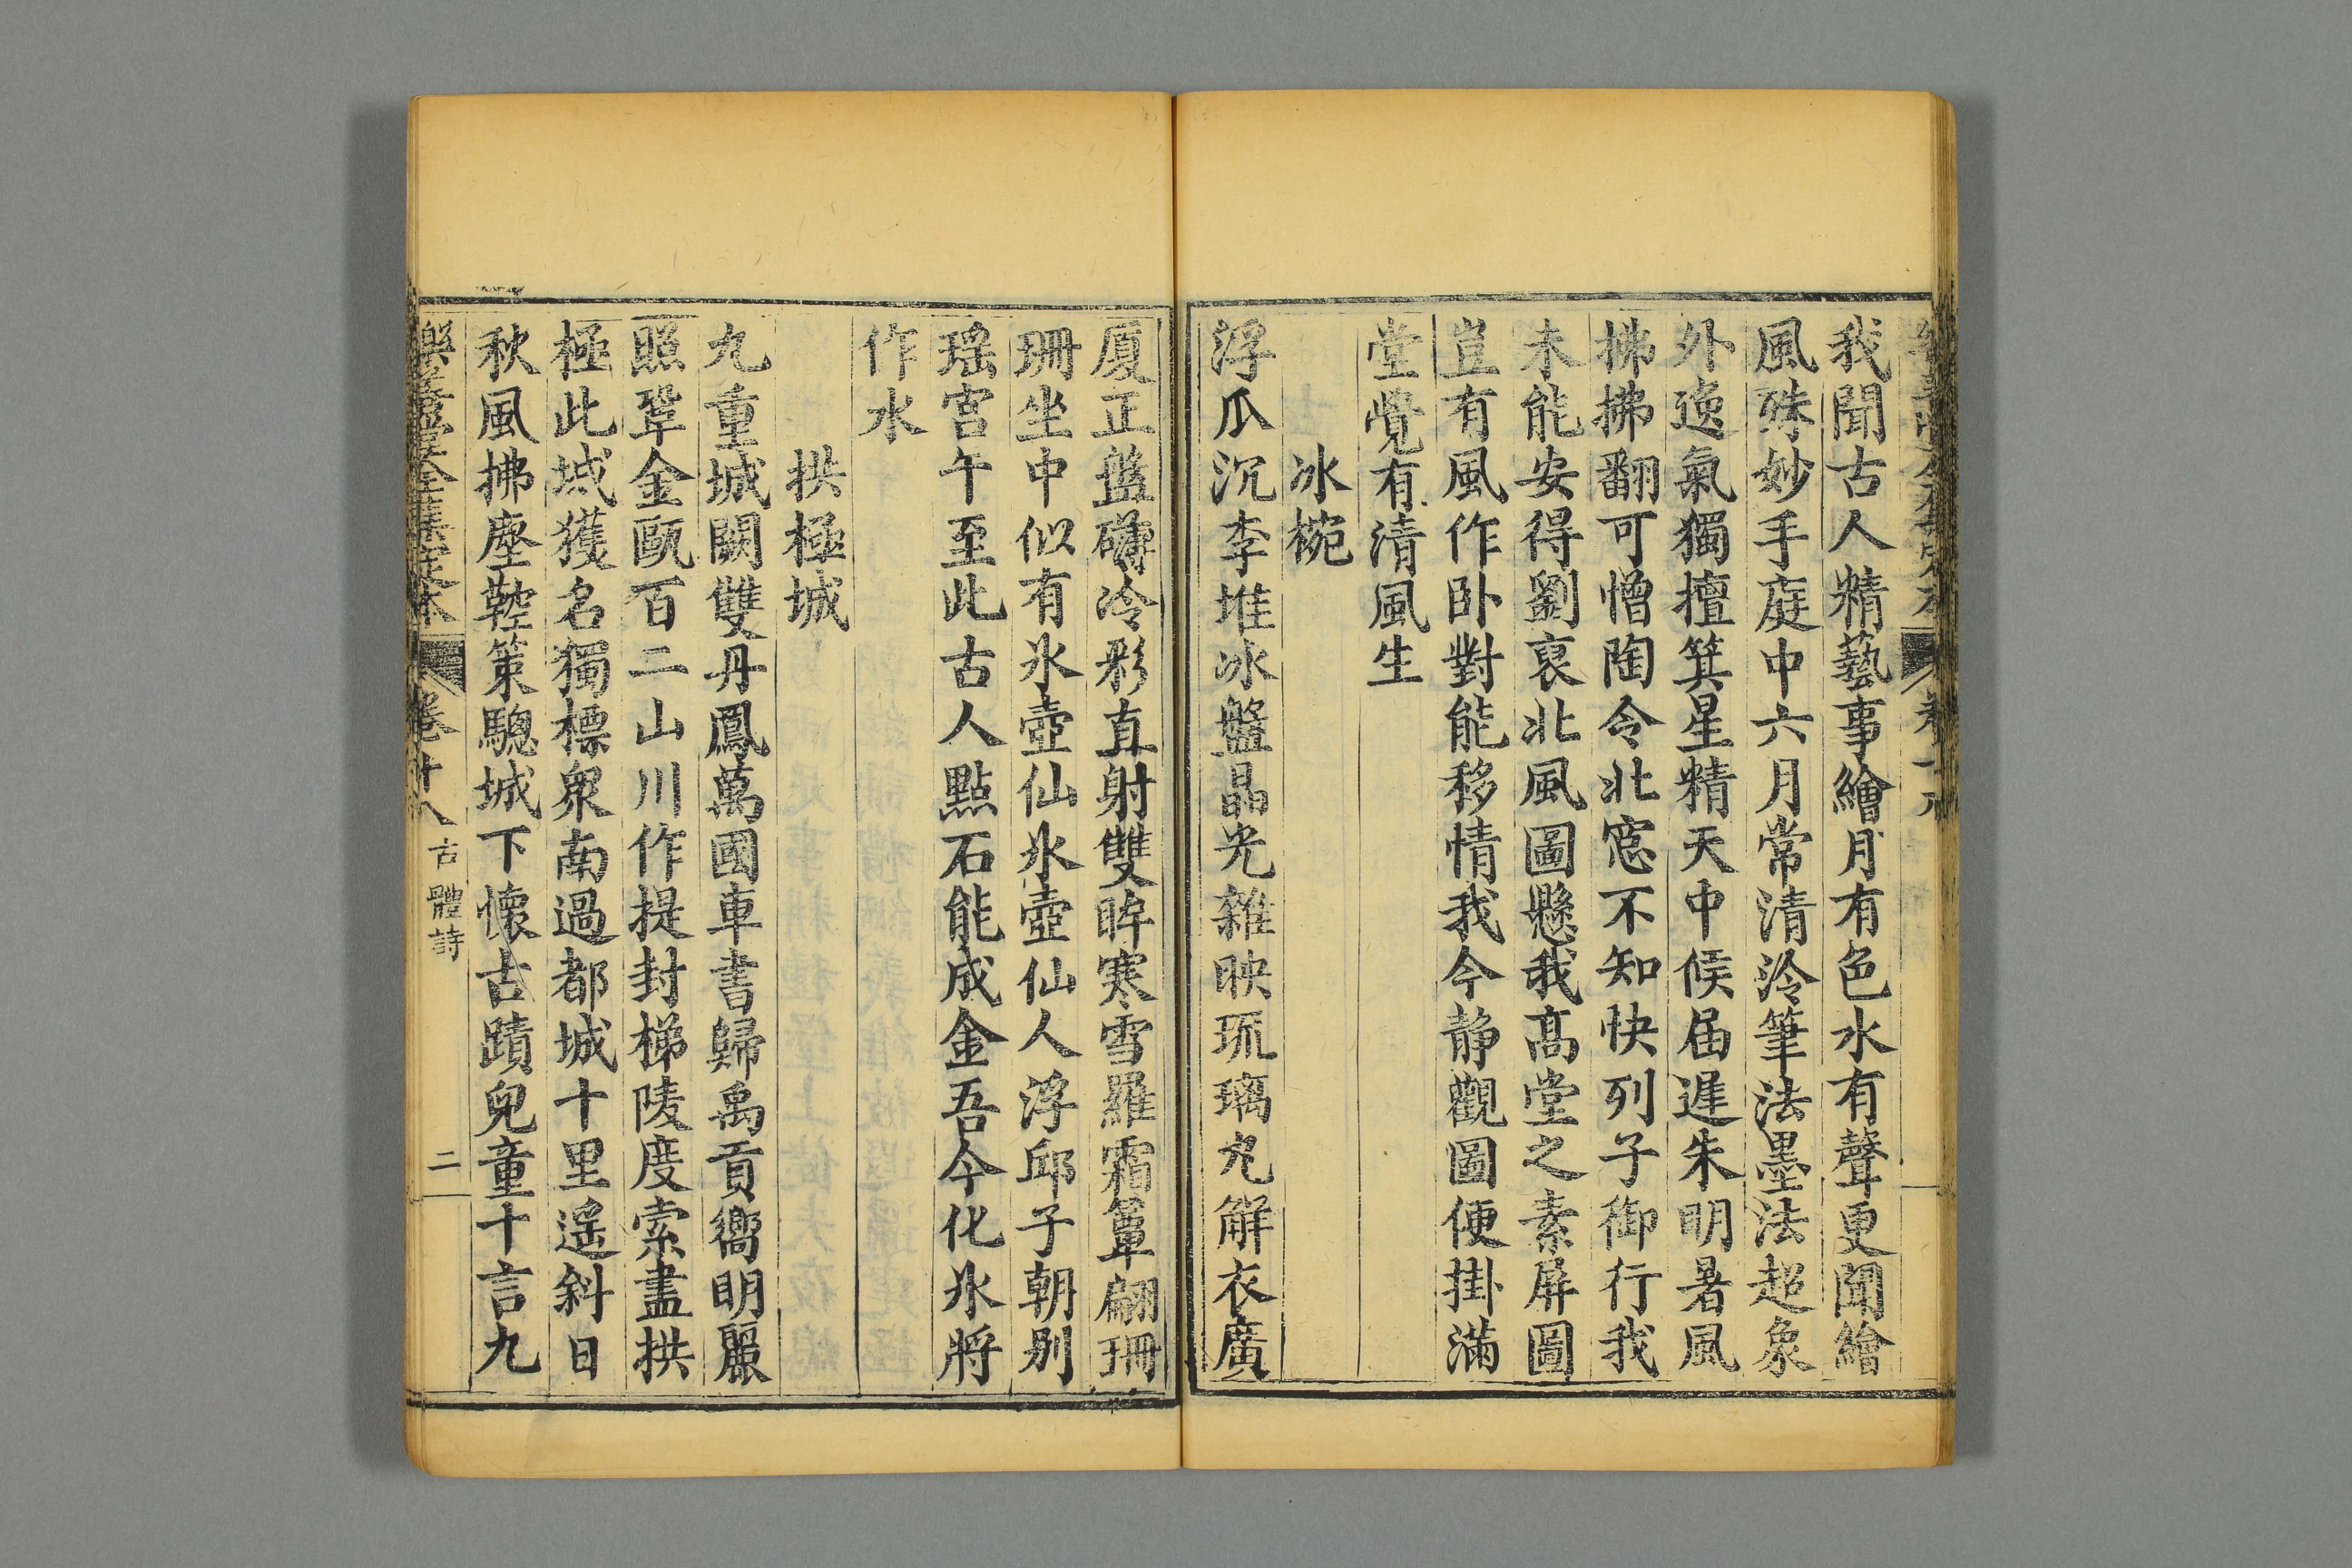 我聞古人精藝事繪月有色水有聲更聞繪
風殊妙手庭中六月常清泠筆法墨法超象
外逸氣獨擅箕星精天中候届遲朱明暑風
拂拂翻可憎陶令北窓不知快列子御行我
未能安得劉裒北風圖懸我髙堂之素屏圖
豈有風作卧對能移情我今静觀圖便掛滿
堂覺有清風生
冰椀
浮瓜沉李堆冰盤晶光雜映琉璃丸解衣廣
厦正盤礴冷彩直射雙眸寒雪羅霜簟翩珊
珊坐中似有氷壺仙氷壺仙人浮邱子朝别
瑶宫午至此古人點石能成金吾今化氷將
作水
拱極城
九重城闕雙丹鳳萬國車書歸禹貢嚮明麗
照鞏金甌百二山川作提封梯陵度索盡拱
極此城獲名獨標衆南過都城十里遥斜日
秋風拂塵鞚策驄城下懷古蹟兒童十言九
樂善堂全集定本 卷十八 古體詩 二